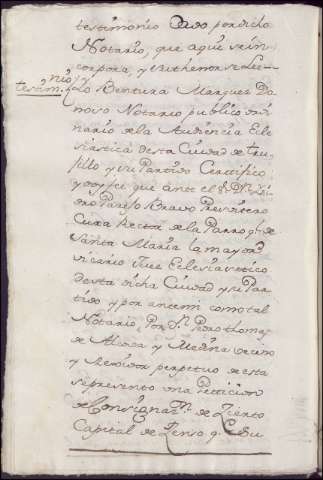 testimonio dado por dicho
Notario, que aqui se in
corpora, y su thenor es Lee=
testim.nio y
Lo Bentura Marques Da
noso Notario publico ordi
nario de la Audiencia Ecle
siastica desta Ciudad de tru
sillo y su Partido Certifico
y doy fee que ante el S.r D.n
dro Paref.o Bravo Presvitero
Cura Rector de la Parroq.l de
Santa Maria la mayor
vicario Juez Eclesiastico
desta dicha Ciudad y su Par
tido y por ante mi como tal
Notario, Por D.n Pedro thomas
de Alcosa y Medina vecino
y Rexidor perpetuo de esta
represento una Peticion
de Consignaz.n de Zierto
Capital de Zenso q.e